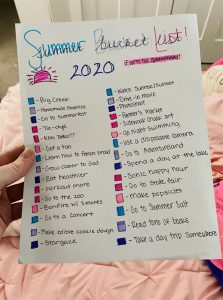 Summer Bucket List!
2020
- Big Crew
- Homemade Smoothies
- Go to Summerfest
- Tie-dye
- Get a tan
- Learn how to French braid
- Grow closer to God
- Eat healthier
- Workout more
- Go to the zoo
- Bonfire w/ s'mores
- Go to a concert
- Make edible cookie dough
- Stargaze
- Watch Sunrise/Sunset
- Drive-in movie
- Photoshoot
- Farmer's Market
- Sidewalk chalk art
- Go night swimming
- use a disposable camera
- Go to Summerland
- Spend a day at the lake
- Sonic happy hour
- Go to State fair
- make popsicles
- Go to Summer Salt
- Read tons of books
- Take a day trip Somewhere